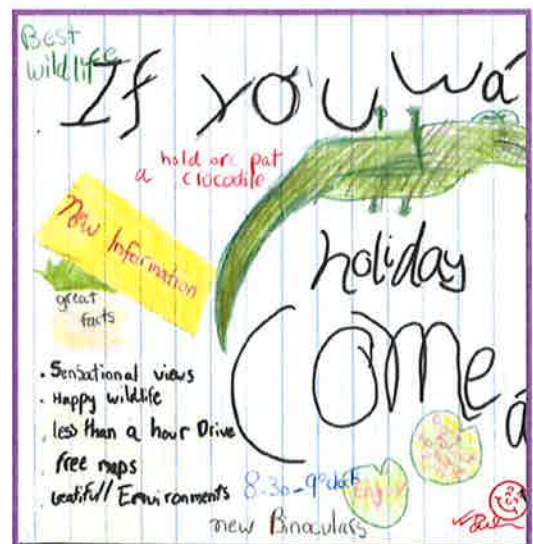 Best
wildlife
If you wa
hold orc pat
a clocodile
New Information
great
facts
holiday
Come a
. Sensational views
. Happy wildlife
. less than a hour Drive
. free maps
. beatifull Environments
8.30-9o'clock
new Binoculars